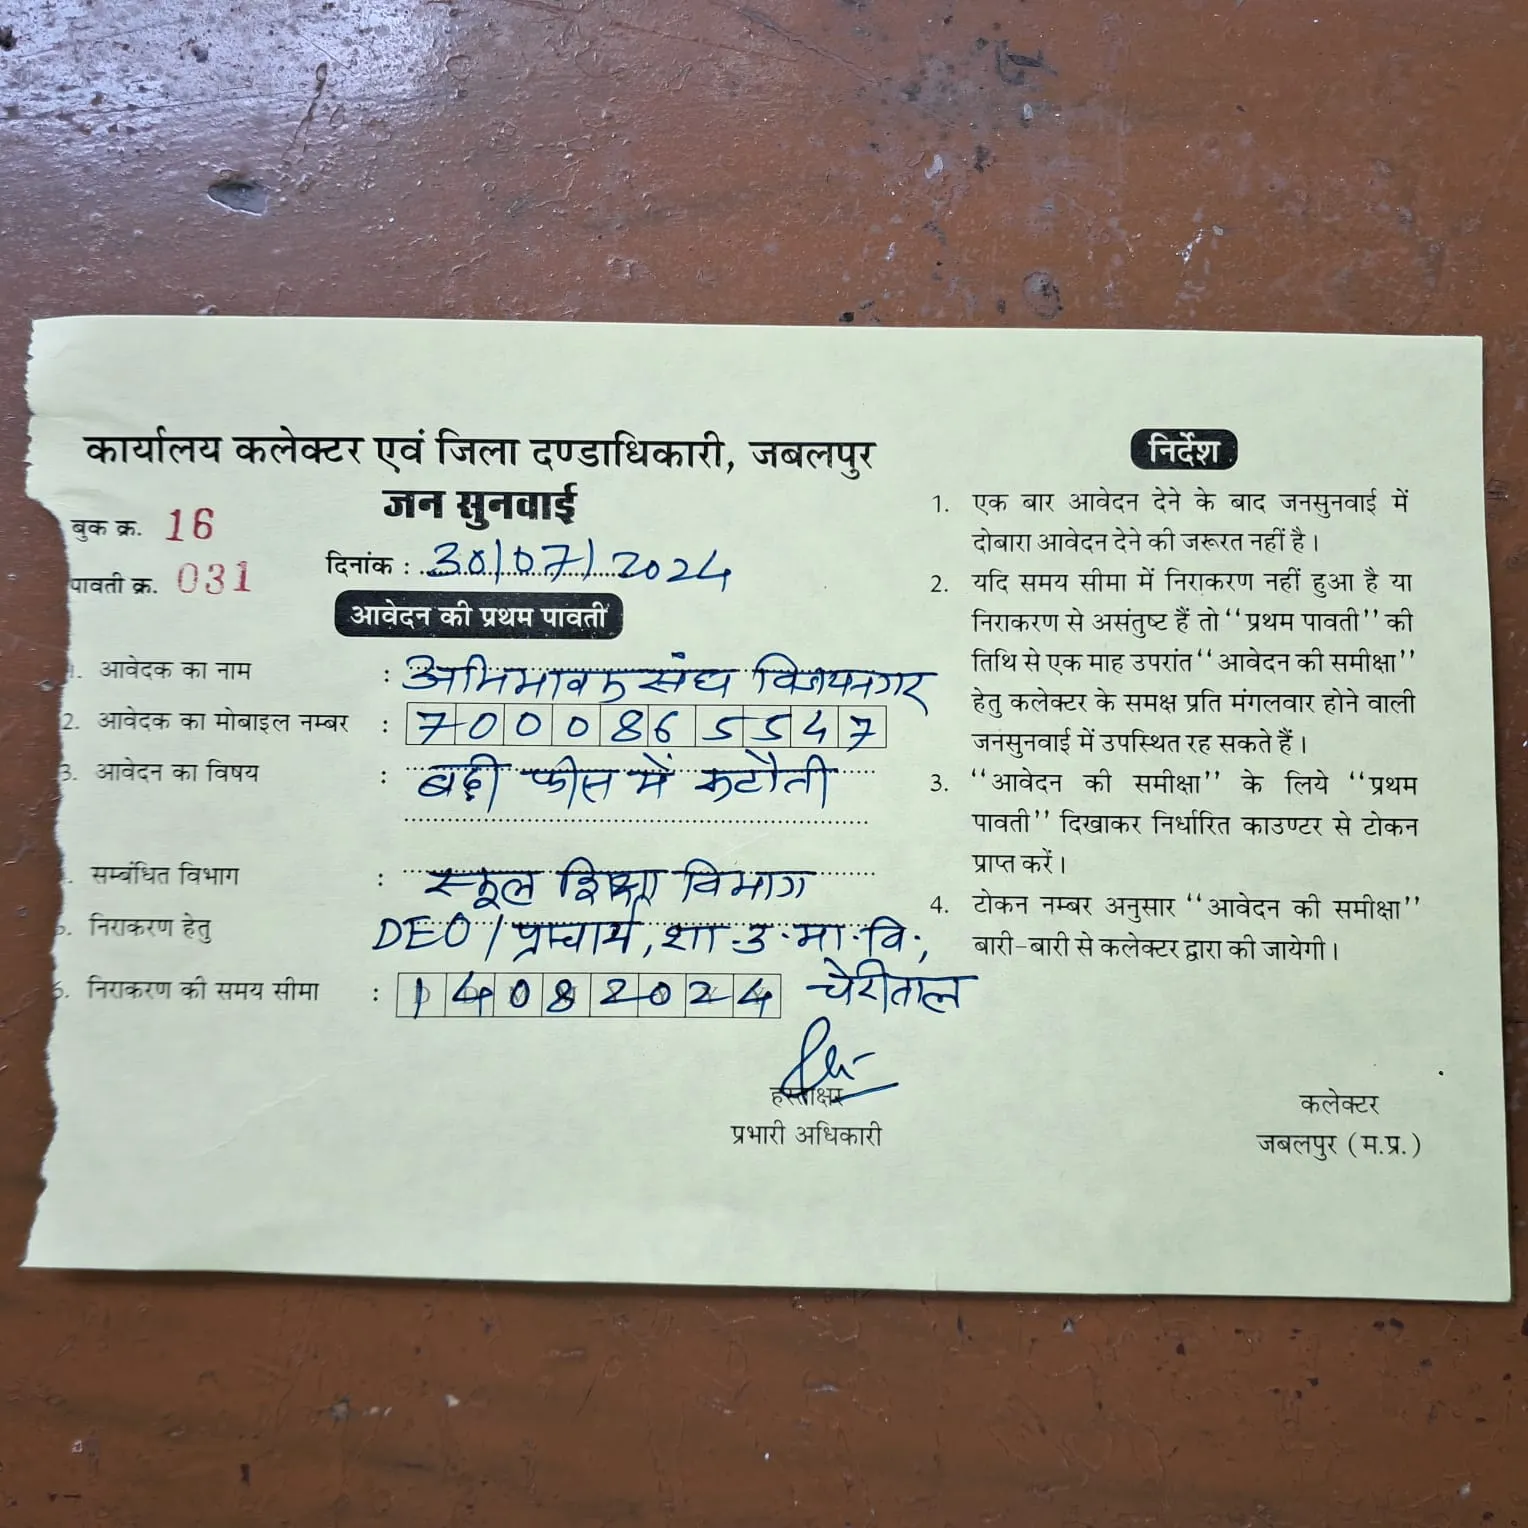 कार्यालय कलेक्टर एवं जिला दण्डाधिकारी, जबलपुर
जन सुनवाई
बुक क्र. 16
दिनांक : 30/07/2024
पावती क्र. 031
आवेदन की प्रथम पावती
1. आवेदक का नाम : अभिभावक संघ विजयनगर
2. आवेदक का मोबाइल नम्बर : 7000865547
3. आवेदन का विषय : बढ़ी फीस में कटौती
4. सम्बंधित विभाग : स्कूल शिक्षा विभाग
5. निराकरण हेतु DEO / प्राचार्य, शा.उ.मा.वि.,
6. निराकरण की समय सीमा : 14082024 चेरीताल
हस्ताक्षर
प्रभारी अधिकारी
निर्देश
1. एक बार आवेदन देने के बाद जनसुनवाई में
दोबारा आवेदन देने की जरूरत नहीं है।
2. यदि समय सीमा में निराकरण नहीं हुआ है या
निराकरण से असंतुष्ट हैं तो "प्रथम पावती" की
तिथि से एक माह उपरांत "आवेदन की समीक्षा"
हेतु कलेक्टर के समक्ष प्रति मंगलवार होने वाली
जनसुनवाई में उपस्थित रह सकते हैं।
3. "आवेदन की समीक्षा" के लिये "प्रथम
पावती" दिखाकर निर्धारित काउण्टर से टोकन
प्राप्त करें।
4. टोकन नम्बर अनुसार "आवेदन की समीक्षा"
बारी-बारी से कलेक्टर द्वारा की जायेगी।
कलेक्टर
जबलपुर (म.प्र.)